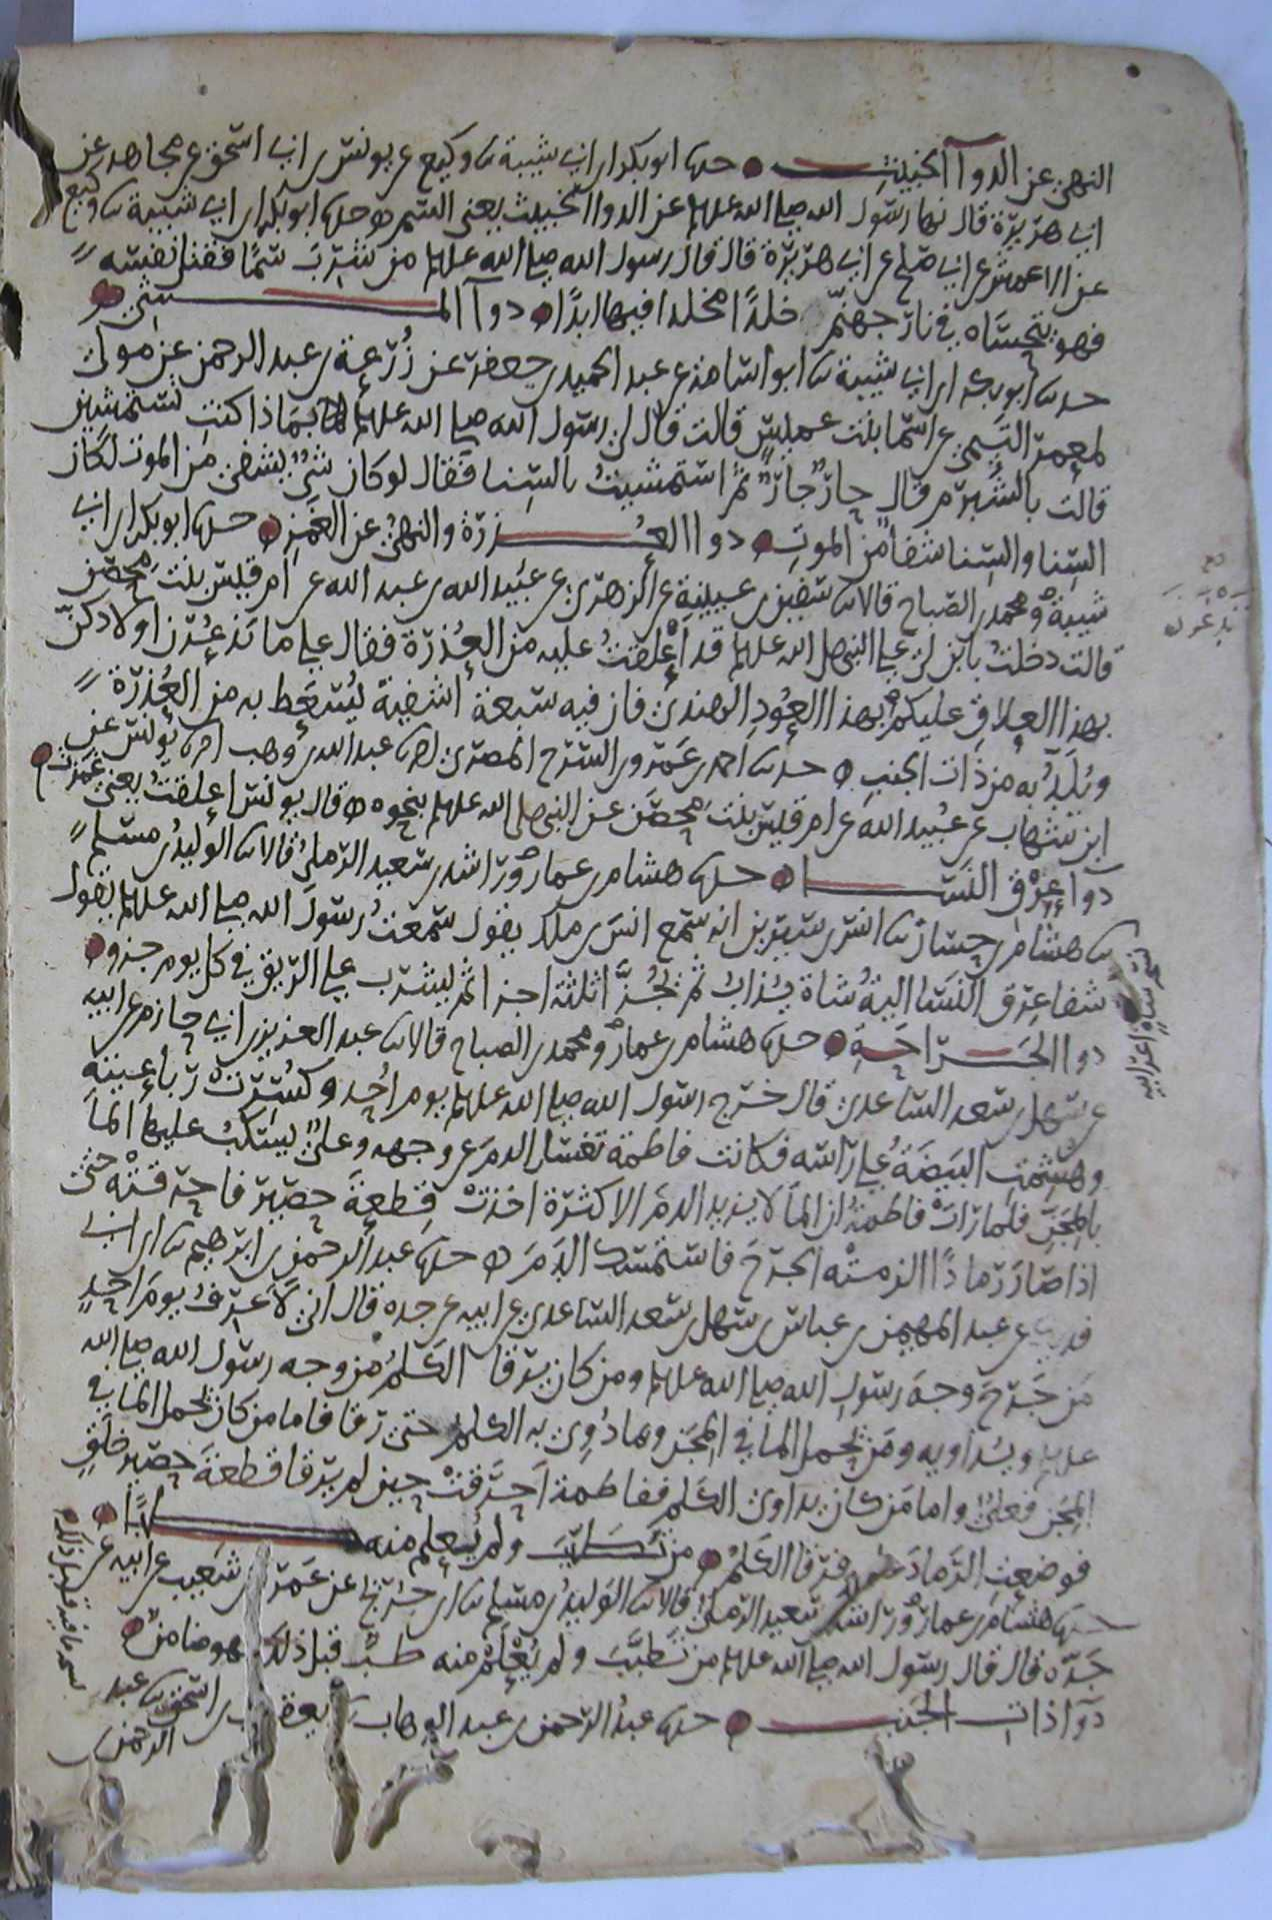 النهي عن الدوآ الخبيث ● حدثنا ابو بكر ابن ابي شيبة ثنا وكيع عن يونس بن ابي اسحق عن مجاهد عن
ابي هريرة قال نها رسول الله صلى الله عليه وسلم عن الدوا الخبيث يعني السم ه حدثنا ابو بكر ابن ابي شيبة ثنا وكيع
عن الاعمش عن ابي صلح عن ابي هريرة قال قال رسول الله صلى الله عليه وسلم من شرب سمًا فقتل نفسه
فهو يتحساه في نار جهنم خلدًا مخلدا فيها ابدًا ه دوآ المشي
حدثنا ابو بكر ابن ابي شيبة ثنا ابو اسامة عن عبد الحميد بن جعفر عن زُرعة بن عبد الرحمن عن مولى
لمعمر التيمي عن اسما بنت عميس قالت قال لي رسول الله صلى الله عليه وسلم بماذا كنتِ تستمشين
قالت بالشُبرم قال حارٌ جارٌ ثم استمشيتُ بالسنا فقال لو كان شيٌ يشفي من الموت لكان
السنا والسنا شفا من الموتِ ه دوا العُذرة والنهيُ عن الغمزِ ه حدثنا ابو بكر ابن ابي
شيبة ومحمد بن الصباح قالا ثنا سفين بن عيينة عن الزهري عن عبيد الله بن عبد الله عن ام قيس بنت محصن
قالت دخلتُ بابن لي على النبي صلى الله عليه وسلم قد أعلقتُ عليه من العُذرة فقال علي ما تدغرن اولادكنّ
بهذا العِلاقِ عليكم بهذا العُودِ الهندي فان فيه سبعة أشفيةً يُسعَط به من العُذرة
ويُلَدُّ به من ذات الجنبِ ه حدثنا احمد بن عمرو بن السرح المصري ثنا عبد الله بن وهب انا يونس عن
ابن شهاب عن عبيد الله عن ام قيس بنت محصن عن النبي صلى الله عليه وسلم بنحوه ه قال يونس اعلقتُ يعني غمزت
دوآ عرق النسا ه حدثنا هشام بن عمار وراشد بن سعيد الرملي قالا ثنا الوليدُ بن مسلم
ثنا هشام بن حسان ثنا انس بن سيرين انه سمع انس بن ملك يقول سمعتُ رسول الله صلى الله عليه وسلم يقول
شفا عرق النسا اليةُ شاة يُذابُ ثم تُجزَّأ ثلثة اجزا ثم يُشرب على الريق في كل يوم جزو
دوا الجراحةِ ه حدثنا هشام بن عمار ومحمد بن الصباح قالا ثنا عبد العزيز بن ابي حازم عن ابيه
عن سهل بن سعد الساعدي قال خرج رسول الله صلى الله عليه وسلم يوم احُد وكُسِرت رباعيته
وهُشِمتِ البيضةُ على رأسه فكانت فاطمة تغسل الدم عن وجهه وعليٌ يسكبُ عليها الماَ
بالمِجنّ فلما رات فاطمةُ ان الماَ لا يزيد الدمَ الا كثرة اخذت قِطعةَ حصير فاحرقته حتى
اذا صار رمادًا الزمته الجرحَ فاستمسك الدمَ ه حدثنا عبد الرحمن بن ابرهيم ثنا ابن ابي
فديك عن عبد المهيمن بن عباس بن سهل بن سعد الساعدي عن ابيه عن جده قال اني لاَعرفُ يومَ احدٍ
مَن جَرَحَ وجهَ رسولِ الله صلى الله عليه وسلم ومن كان يرقا الكَلمُ من وجه رسول الله صلى الله
عليه وسلم ويُداويه ومَن يحمل الما في المِجن وبما دُوِي به الكلم حتى رقا فاما من كان يحمل الما في
المِجن فعليٌ واما مَن كان يداوي الكلم ففاطمة احرقت حين لم يرقا قطعةَ حصير خلِق
فوضعتِ الرمادَ عليه فرقا الكَلمُ ه من تطبب ولم يُعلم منه طبًا
حدثنا هشام بن عمار وراشد بن سعيد الرملي قالا ثنا الوليدُ بن مسلم ثنا ابن جُريج عن عَمرو بن شعيب عن ابيه عن
جَدّه قال قال رسول الله صلى الله عليه وسلم من تطَبَّبَ ولم يُعْلَم منه طبٌ قبل ذلك فهو ضامنٌ
دوآ ذات الجنب ه حدثنا عبدُ الرحمن بن عبد الوهاب ثنا يعقوب بن اسحق ثنا عبد
الرحمن بن
تدغرن
شاة اعرابيه